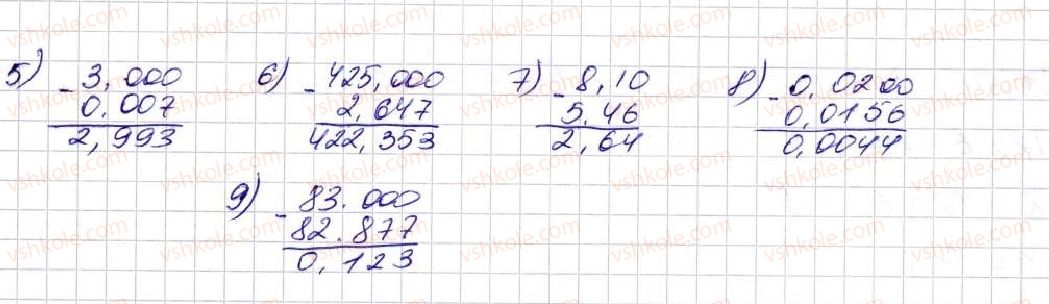 5) - 3,000
0.007
2,993
6) - 425,000
2,647
422,353
7) - 8,10
5,46
2,64
8) - 0,0200
0,0156
0,0044
9) - 83.000
82.877
0,123
vshkole.com